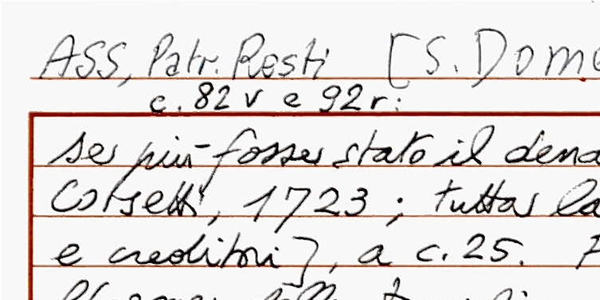 ASS, Patr. Resti [S. Dome
c. 82 v e 92 r:
se più fosse stato il dena
Corsetti, 1723; tutta la
e creditori], a c. 25.